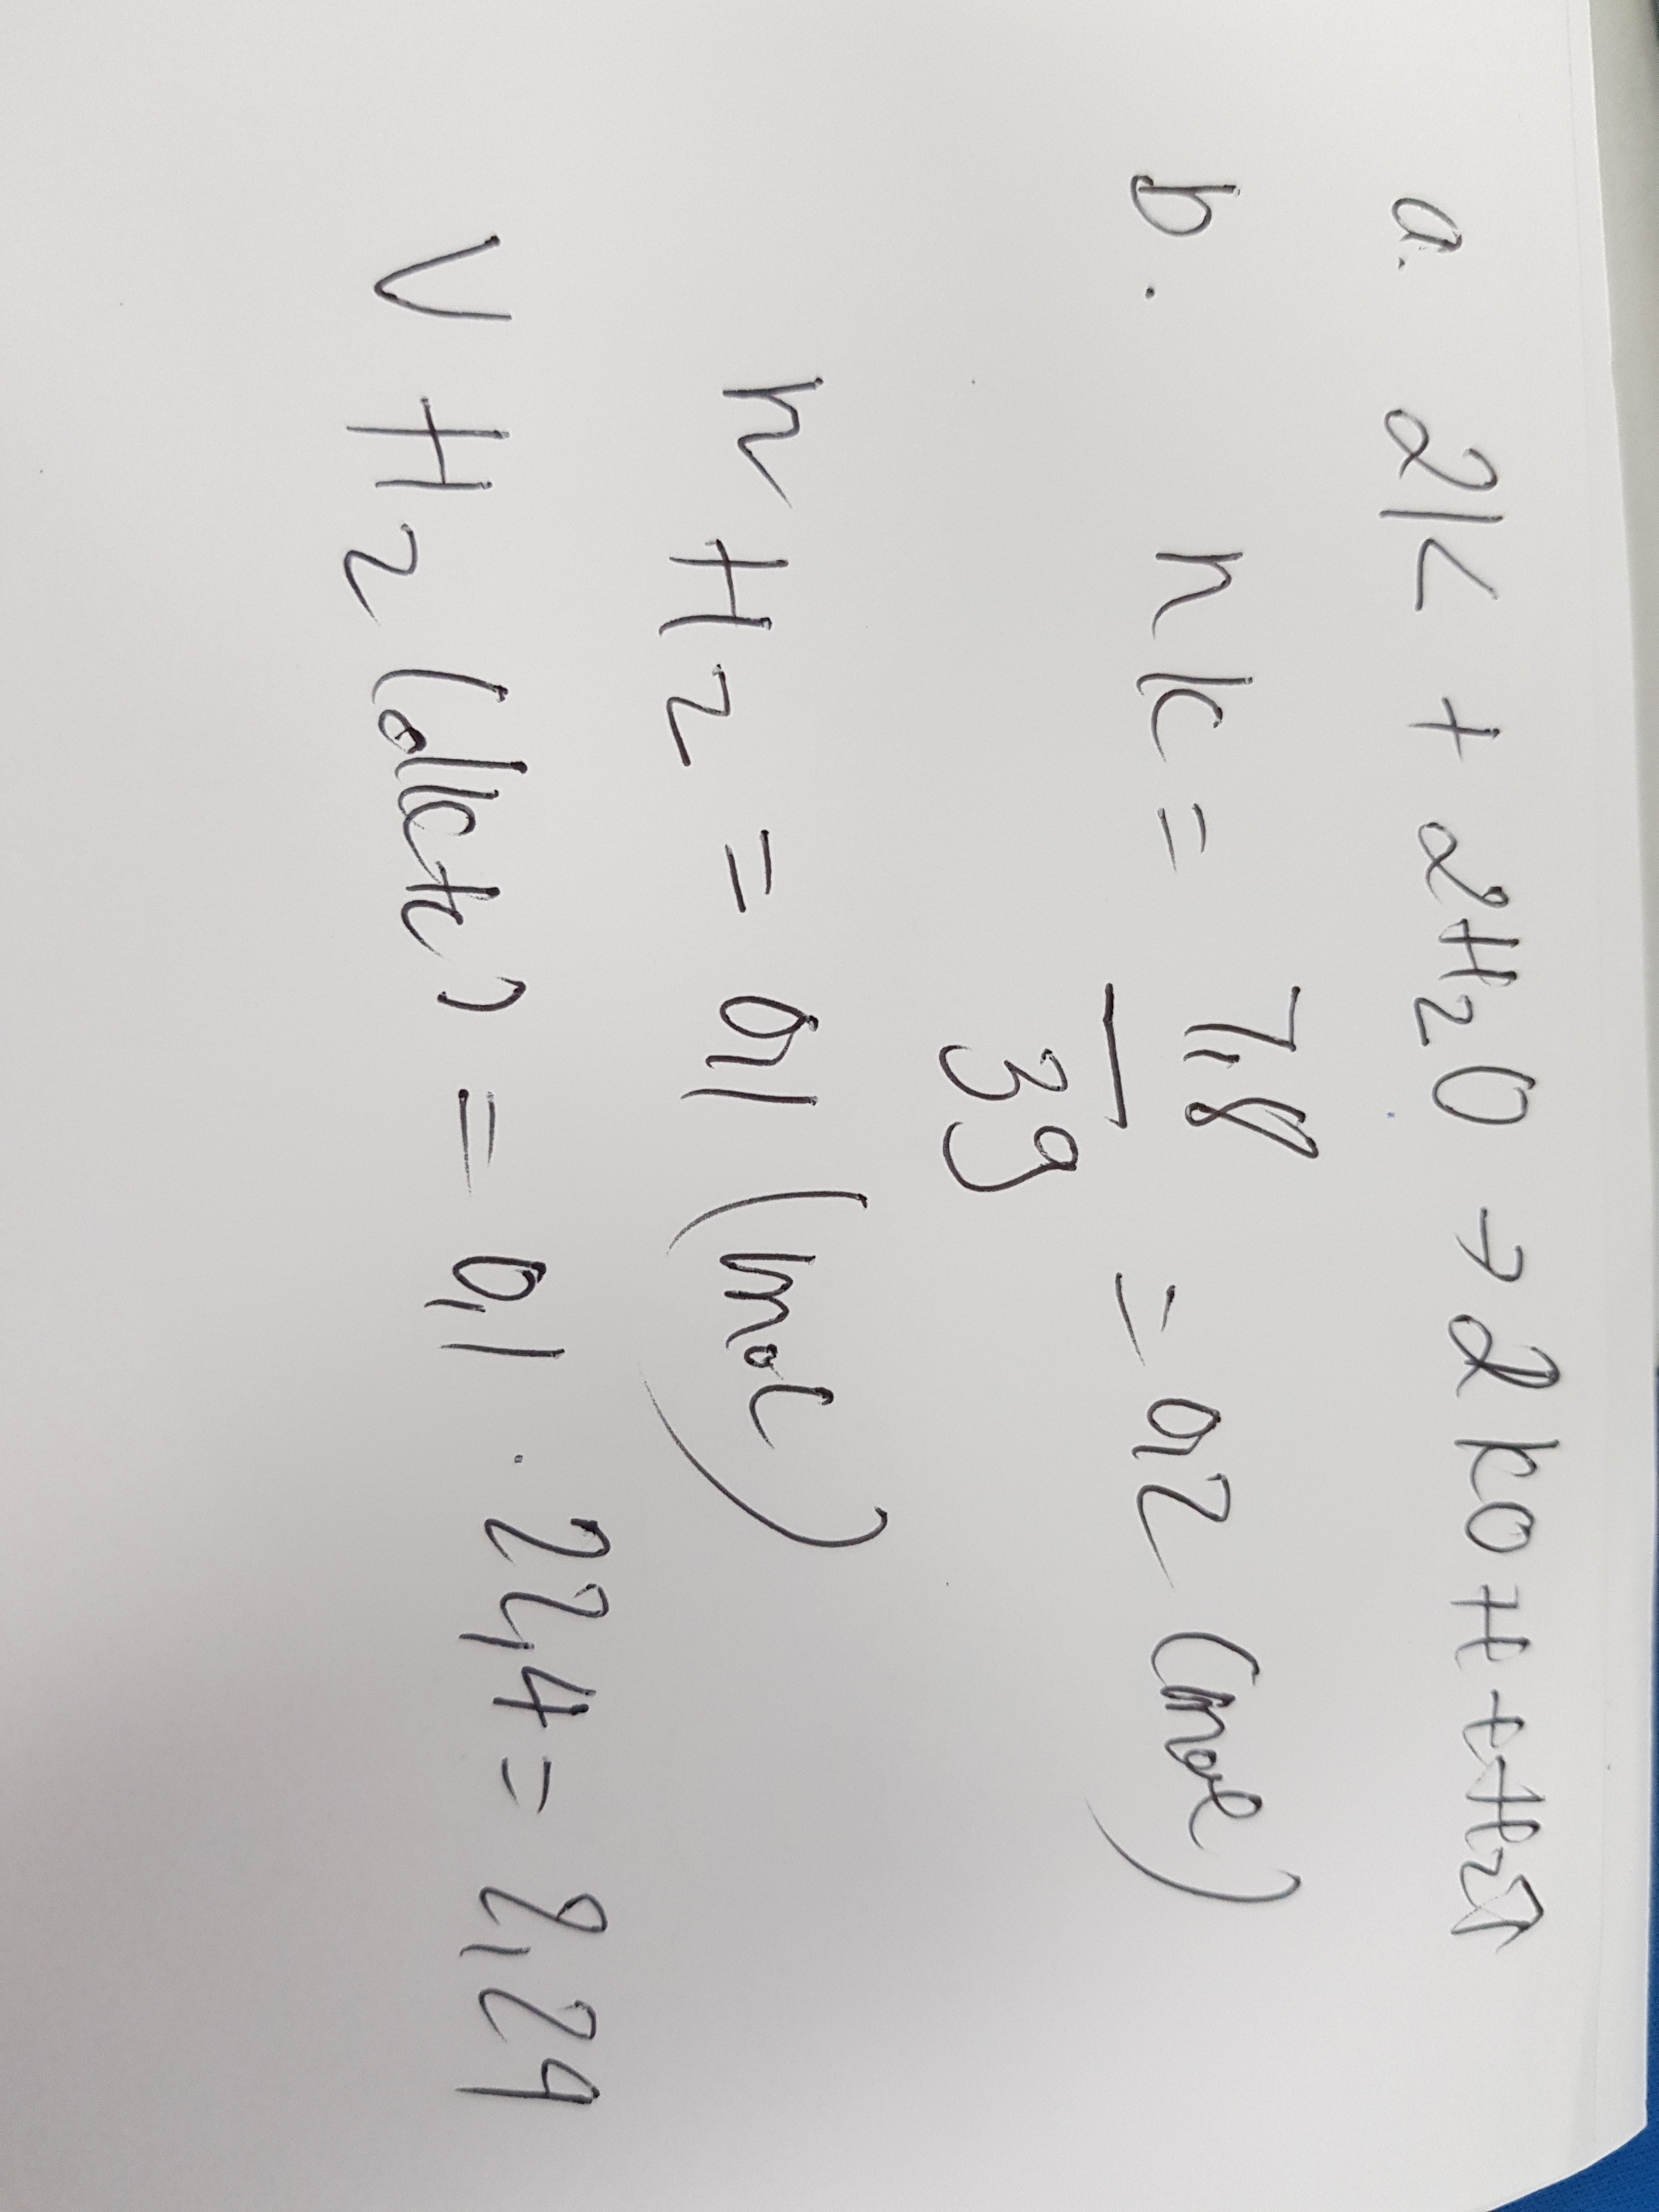 a. 2K + 2H2O → 2KOH + H2↑
b. nK = 7,8
39
= 0,2 (mol)
nH2 = 0,1 (mol)
VH2 (đktc) = 0,1 . 22,4 = 2,24